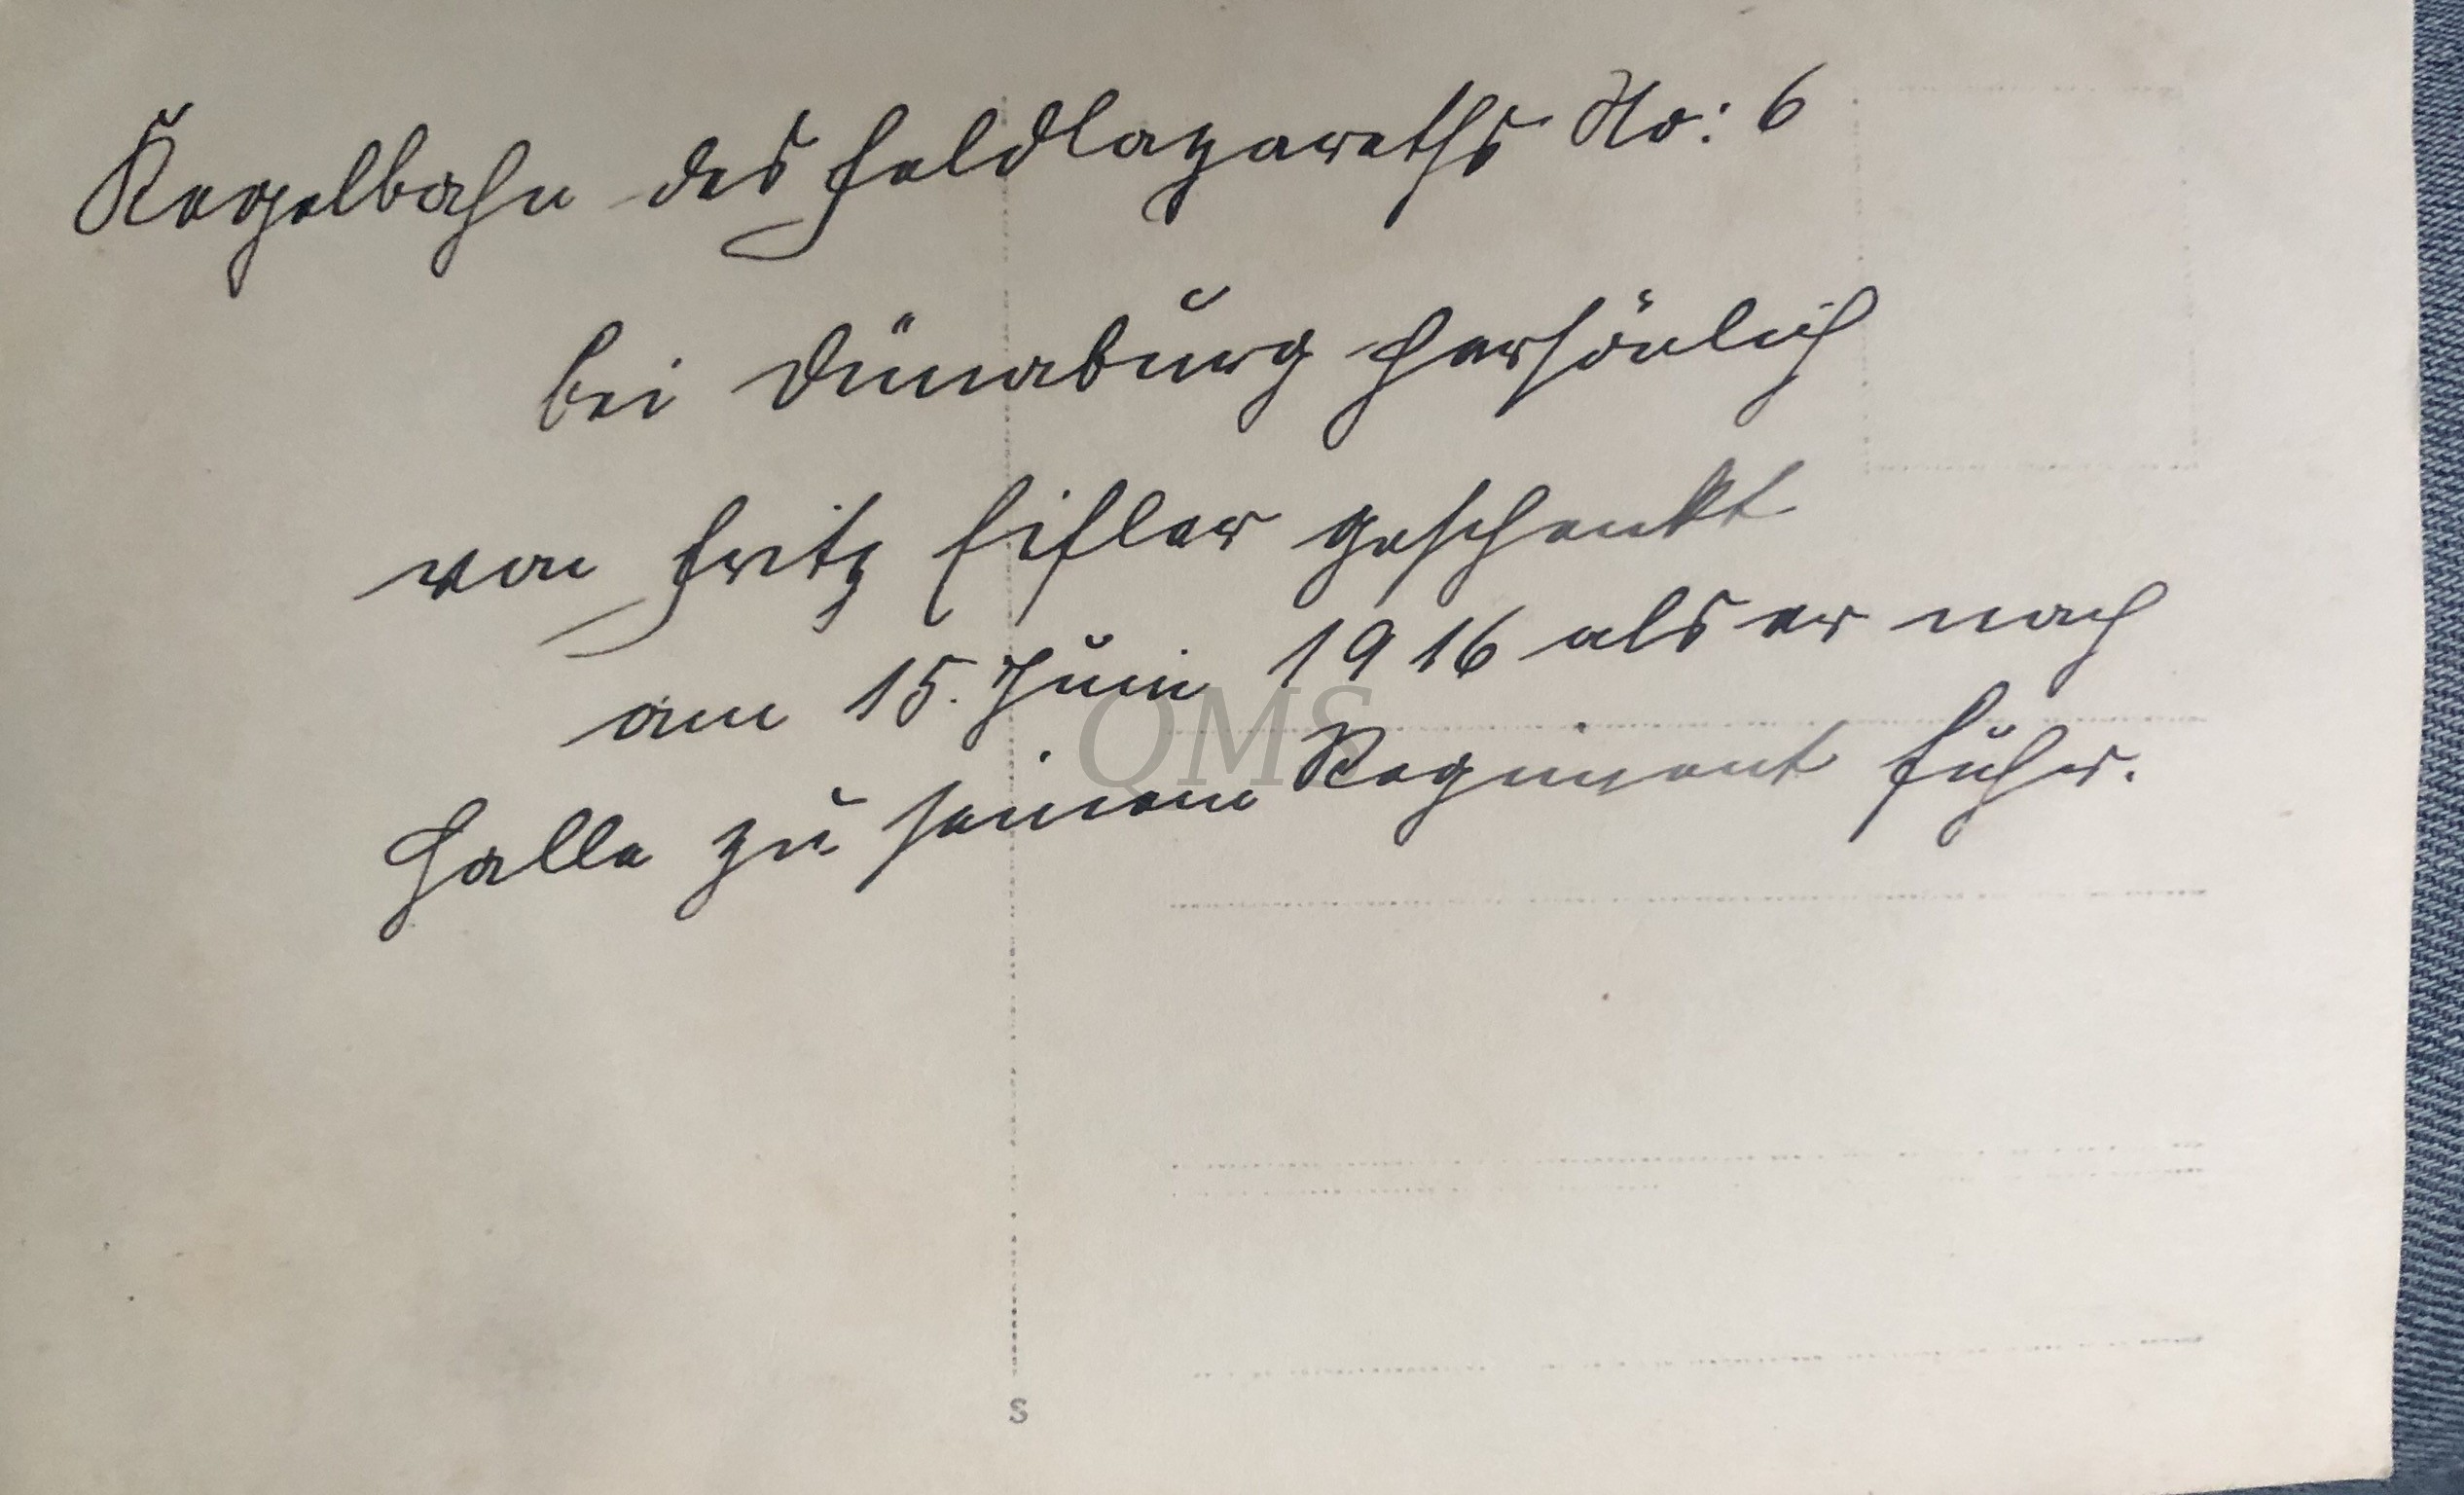 Kegelbahn des Feldlazareths No: 6
bei Dünaburg persönlich
von Fritz Eifler geschenkt
am 15. Juni 1916 als er nach
Halle zu seinem Regiment fuhr.
QMS
S